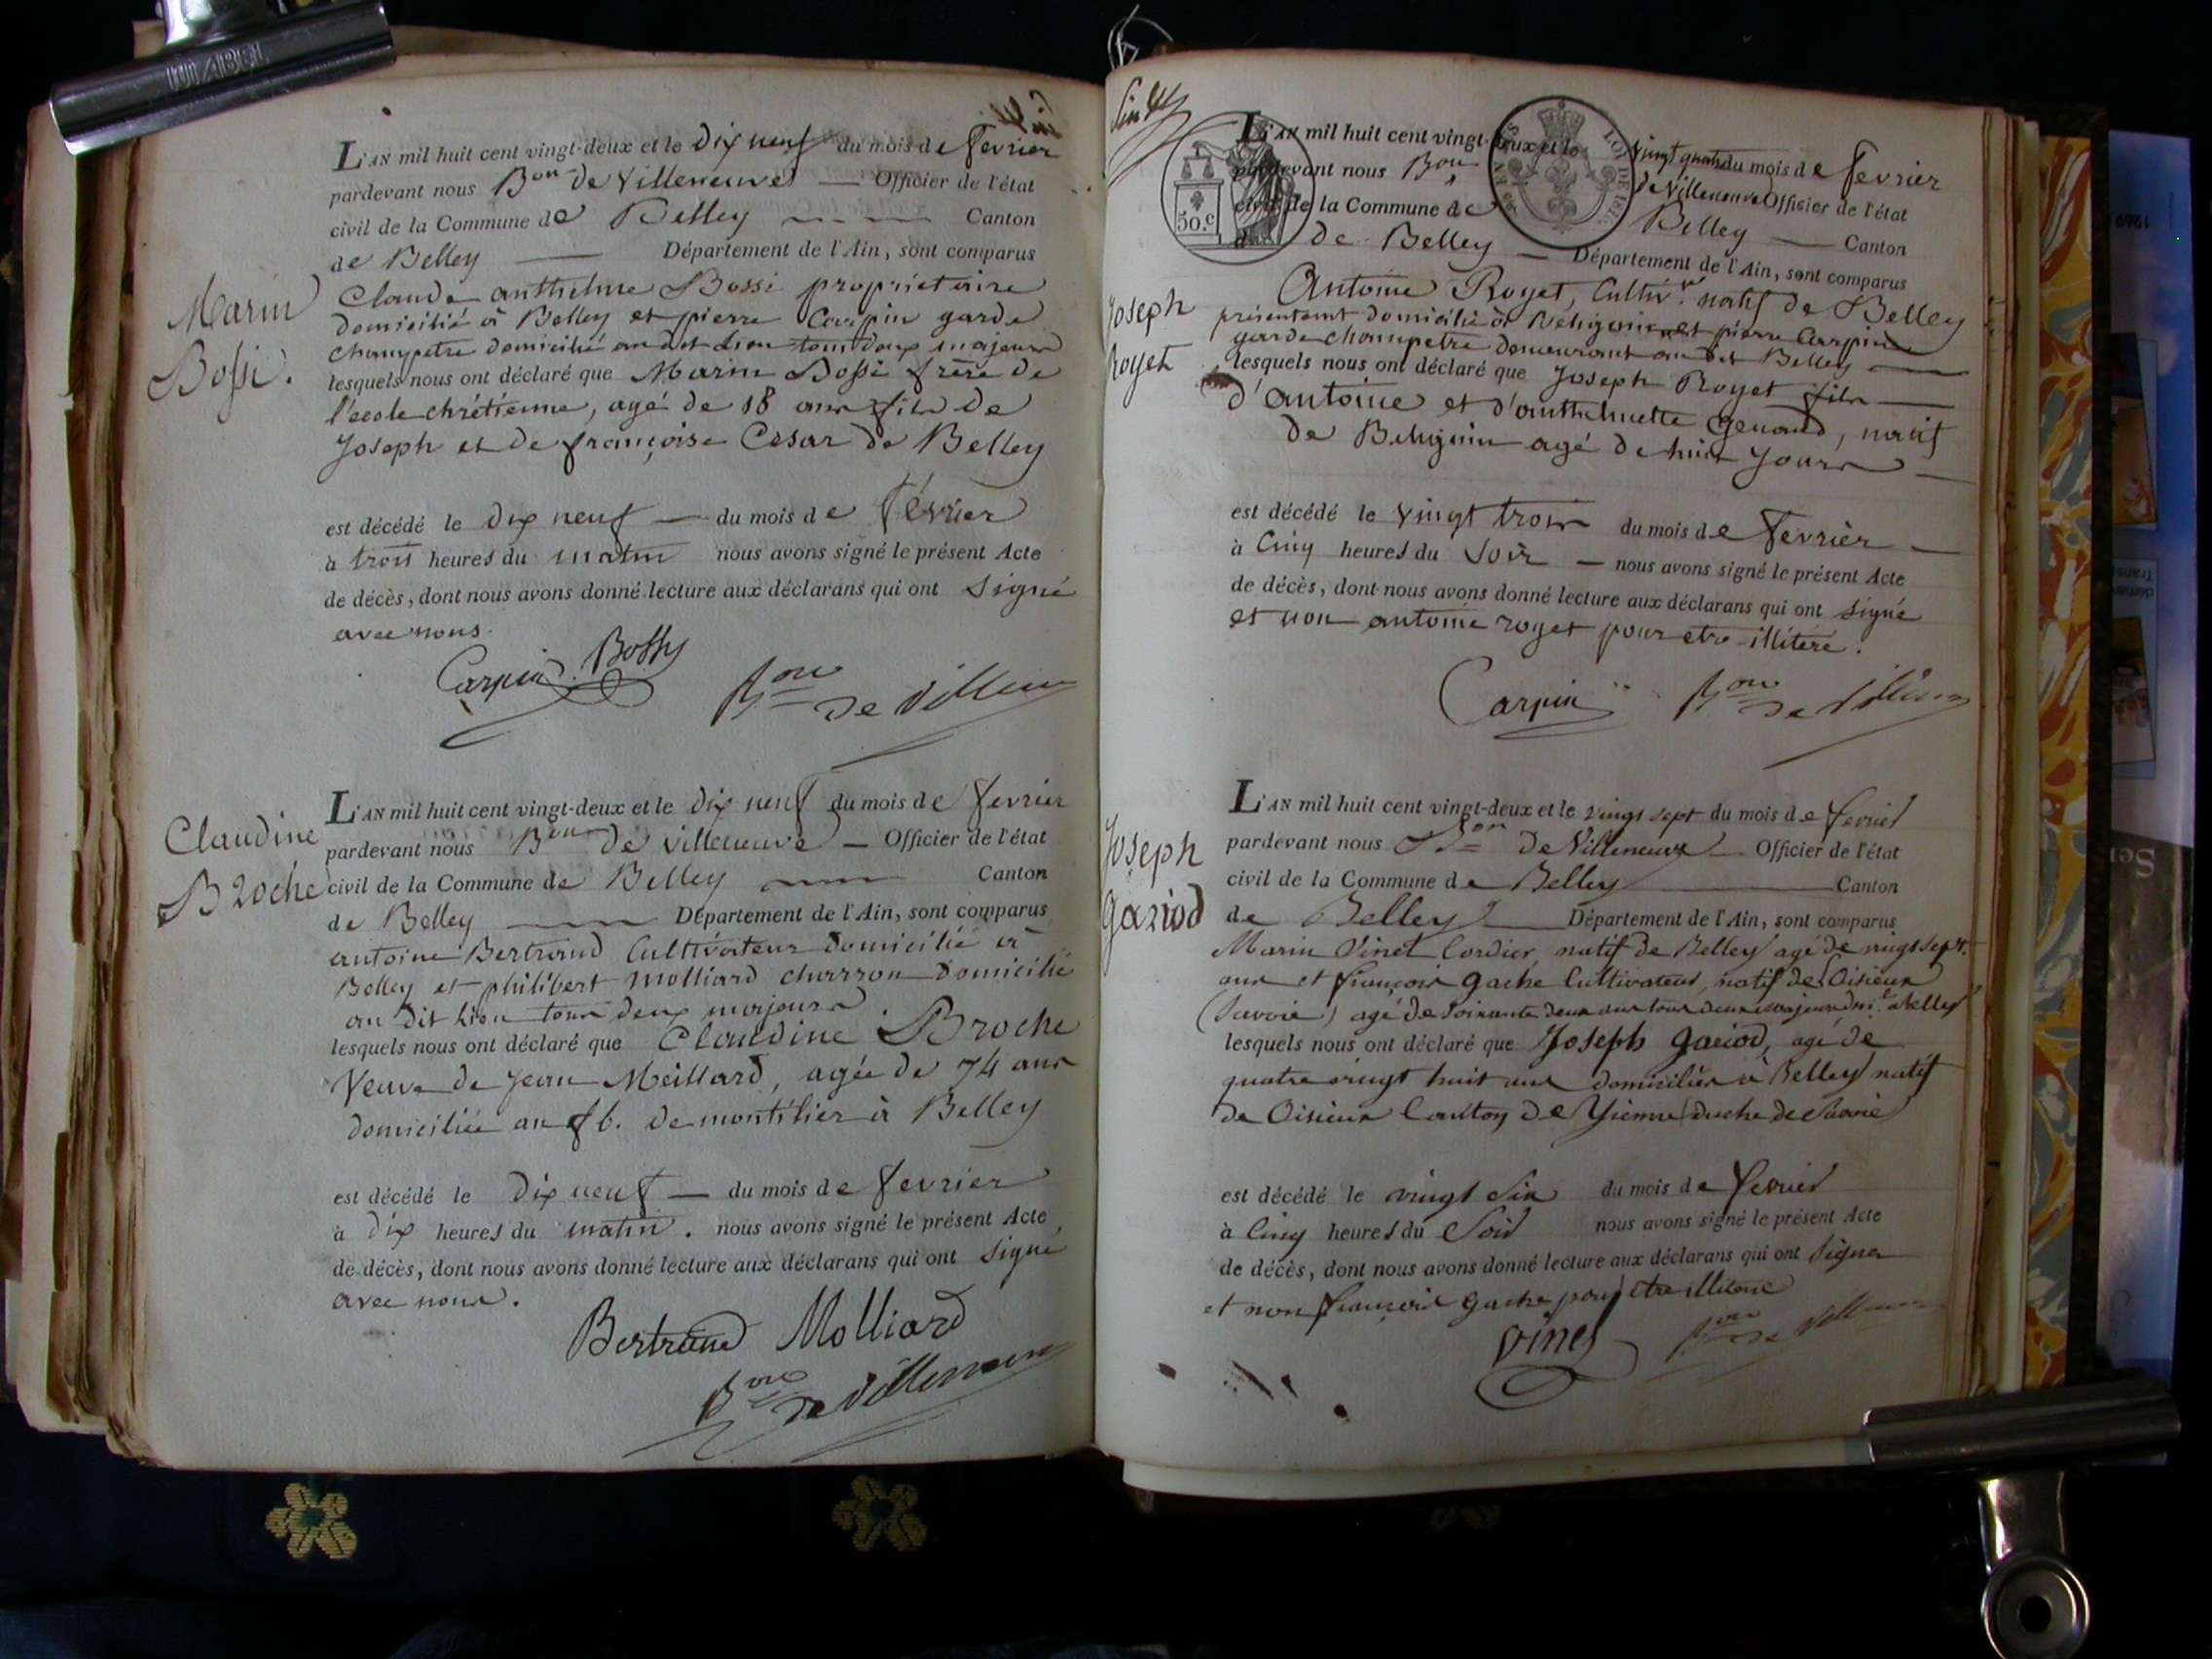 L'AN mil huit cent vingt-deux et le dix neuf du mois de fevrier
pardevant nous Bon de Villeneuve — Officier de l'état
civil de la Commune de Belley Canton
de Belley — Département de l'Ain, sont comparus
Marin
Bossi.
Claude anthelme Bossi propriétaire
domicilié à Belley et pierre Carpin garde
champetre domicilié au dit Lieu tous deux majeurs
lesquels nous ont déclaré que Marin Bossi frère de
l'école chrétienne, agé de 18 ans fils de
Joseph et de françoise César de Belley
est décédé le dix neuf — du mois de février
à trois heures du matin nous avons signé le présent Acte
de décès, dont nous avons donné lecture aux déclarans qui ont Signé
avec nous.
Carpin Bossy
Bon de Villeneuve
L'AN mil huit cent vingt-deux et le dix neuf du mois de fevrier
Claudine
Broche
pardevant nous Bon de villeneuve — Officier de l'état
civil de la Commune de Belley Canton
de Belley — Département de l'Ain, sont comparus
antoine Bertrand Cultivateur domicilié à
Belley et philibert Molliard charron domicilié
au dit Lieu tous deux majeurs
lesquels nous ont déclaré que Claudine Broche
Veuve de Jean Meillard, agée de 74 ans
domiciliée au fb. de montilier à Belley
est décédé le dix neuf — du mois de fevrier
à dix heures du matin. nous avons signé le présent Acte
de décès, dont nous avons donné lecture aux déclarans qui ont Signé
avec nous.
Bertrand Molliard
Bon de Villeneuve
L'AN mil huit cent vingt-deux et le vingt quatre du mois de fevrier
pardevant nous Bon de Villeneuve Officier de l'état
civil de la Commune de Belley — Canton
de Belley — Département de l'Ain, sont comparus
50.c
LOI DE 1816
Joseph
Royet
Antoine Royet, Cultivr. natif de Belley
présentement domicilié à et pierre Carpin
garde champetre demeurant au dit Belley —
lesquels nous ont déclaré que Joseph Royet fils —
d'antoine et d'anthelmette Genand, natif
de agé de huit Jours —
est décédé le vingt trois du mois de fevrièr —
à Cinq heures du Soir — nous avons signé le présent Acte
de décès, dont nous avons donné lecture aux déclarans qui ont signé
et non antoine royet pour etre illitéré.
Carpin Bon de Villeneuve
L'AN mil huit cent vingt-deux et le vingt sept du mois de fevrier
Joseph
Gariod
pardevant nous Bon de Villeneuve — Officier de l'état
civil de la Commune de Belley — Canton
de Belley — Département de l'Ain, sont comparus
Marin Vinet Cordier natif de Belley agé de vingt sept
ans et françois gache Cultivateur, natif de Oisieux
(Savoie) agé de soixante deux ans tous deux majeurs à Belley
lesquels nous ont déclaré que Joseph gariod, agé de
quatre vingt huit ans domicilié à Belley natif
de Oisieux Canton de Yienne duché de Savoie
est décédé le vingt Six du mois de fevrier
à Cinq heures du Soir nous avons signé le présent Acte
de décès, dont nous avons donné lecture aux déclarans qui ont Signer
et non françois gache pour être illitéré
vinet Bon de Villeneuve